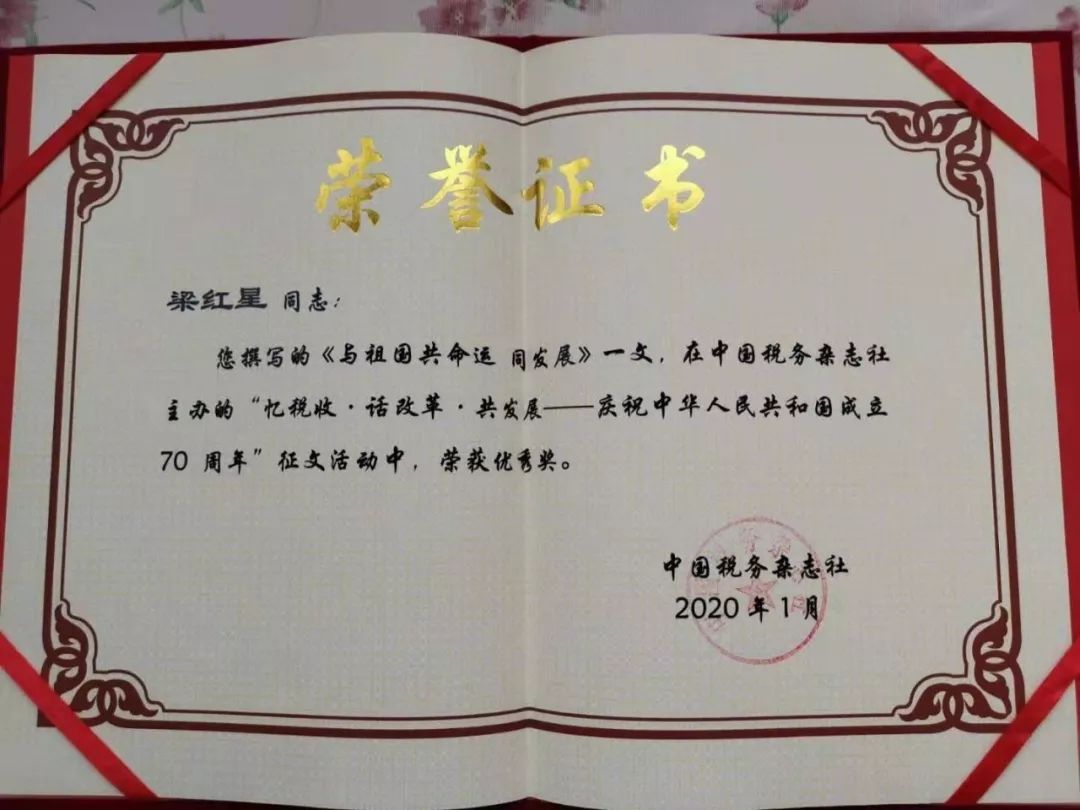 荣誉证书
梁红星 同志：
您撰写的《与祖国共命运 同发展》一文，在中国税务杂志社
主办的“忆税收·话改革·共发展——庆祝中华人民共和国成立
70 周年”征文活动中，荣获优秀奖。
中国税务杂志社
2020 年 1 月